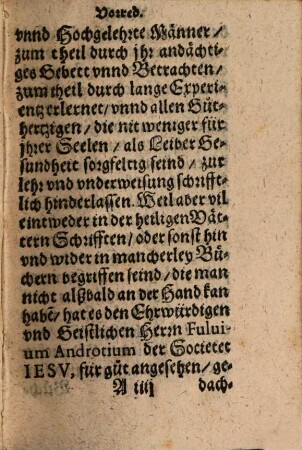 Vorred.
vnnd Hochgelehrte Männer /
zum theil durch jhr andächti-
ges Gebett / vnnd Betrachten /
zum theil durch lange Experi-
entz erlernet / vnnd allen Güt-
hertzigen / die nit weniger für
jhrer Seelen / als Leiber Ge-
sundheit sorgfeltig seind / zur
lehr vnd vnderweisung schrifft-
lich hinderlassen. Weil aber vil
eintweder in der heiligen Vät-
tern Schrifften / oder sonst hin
vnd wider in mancherley Bü-
chern begriffen seind / die man
nicht alßbald an der Hand kan
habē / hat es den Ehrwürdigen
vnd Geistlichen Herrn Fului-
um Androtium der Societet
IESV, für güt angesehen / ge-
A iiij dach-